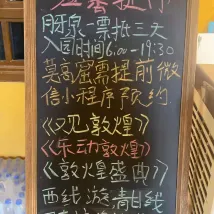 月牙泉一票抵三天
入园时间6:00-19:30
莫高窟需提前微
信小程序预约
《又见敦煌》
《乐动敦煌》
《敦煌盛典》
西线游青甘线